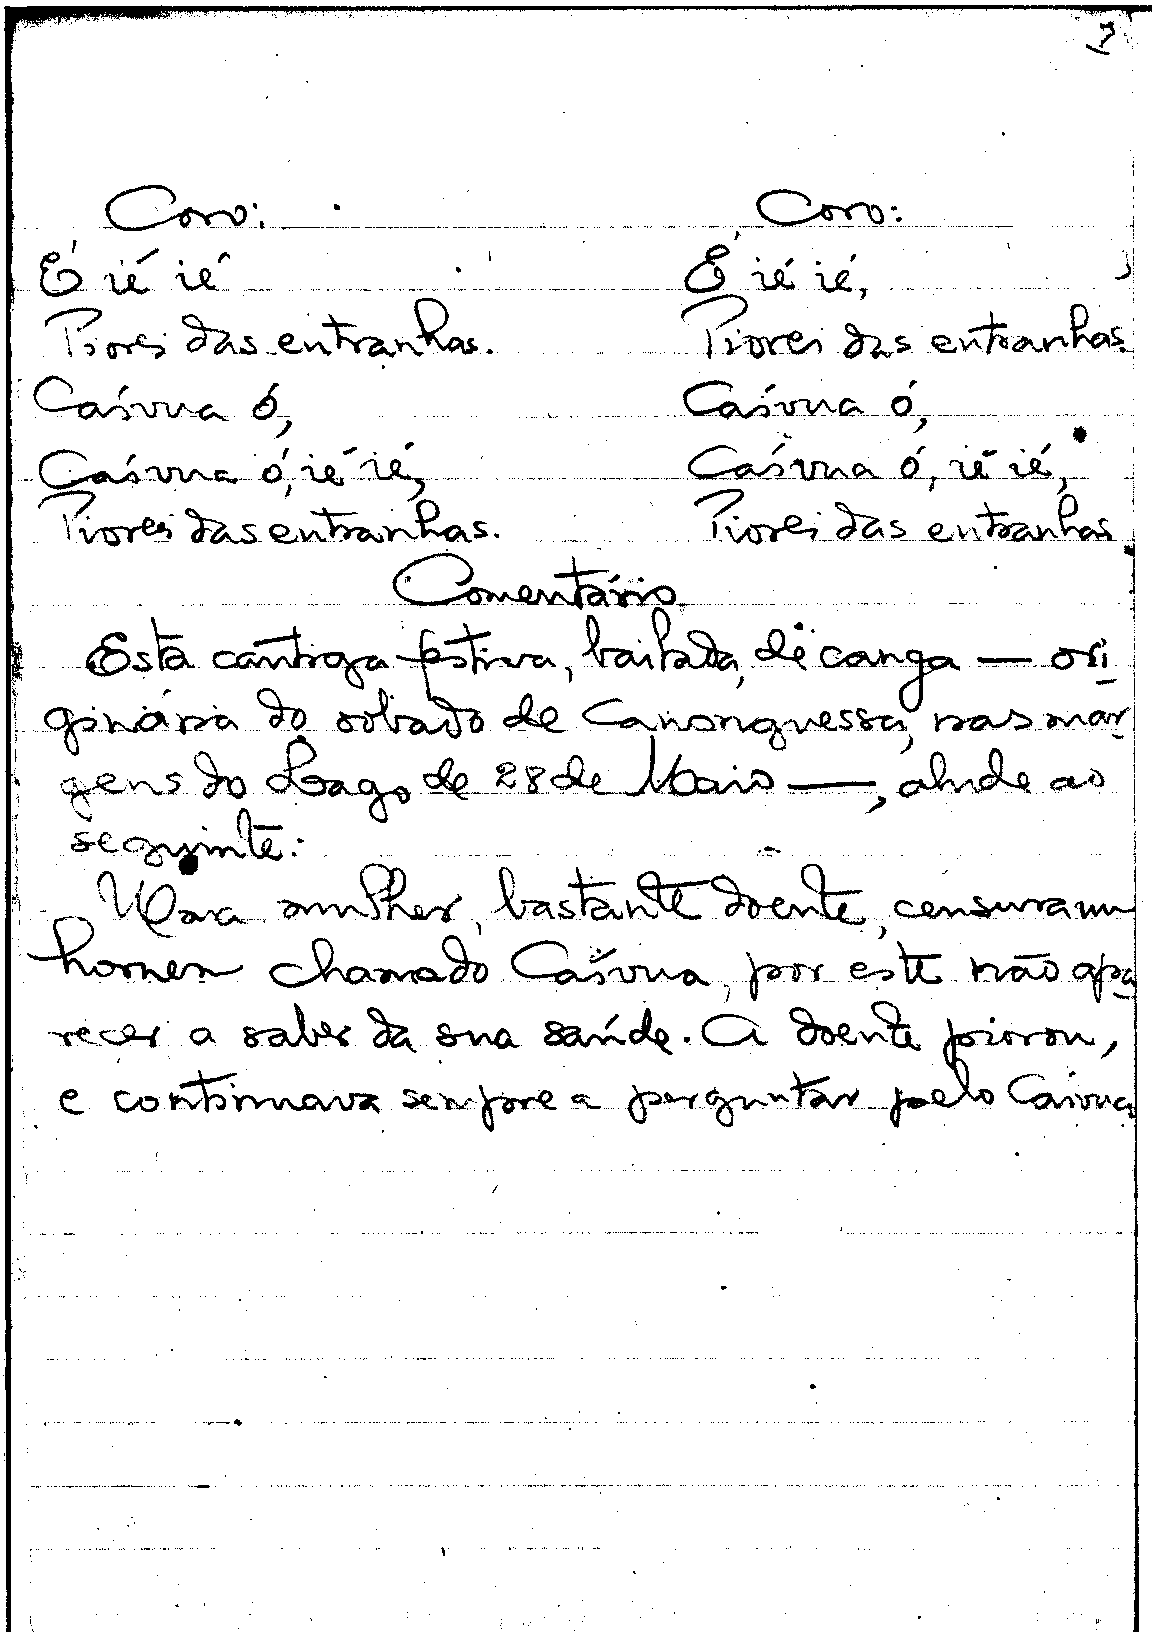 Coro:
É ié ié
Piorei das entranhas.
Caívua ó,
Caívua ó, ié ié,
Piorei das entranhas.
Coro:
É ié ié,
Piorei das entranhas.
Caívua ó,
Caívua ó, ié ié,
Piorei das entranhas
Comentário
Esta cantiga festiva, bailada, de canga — ori
ginária do sobado de Camonguessa, nas mar
gens do Lago de 28 de Maio —, alude ao
seguinte:
Uma mulher, bastante doente, censurava um
homem chamado Caívua, por este não apa
recer a saber da sua saúde. A doente piorou,
e continuava sempre a perguntar pelo Caívua